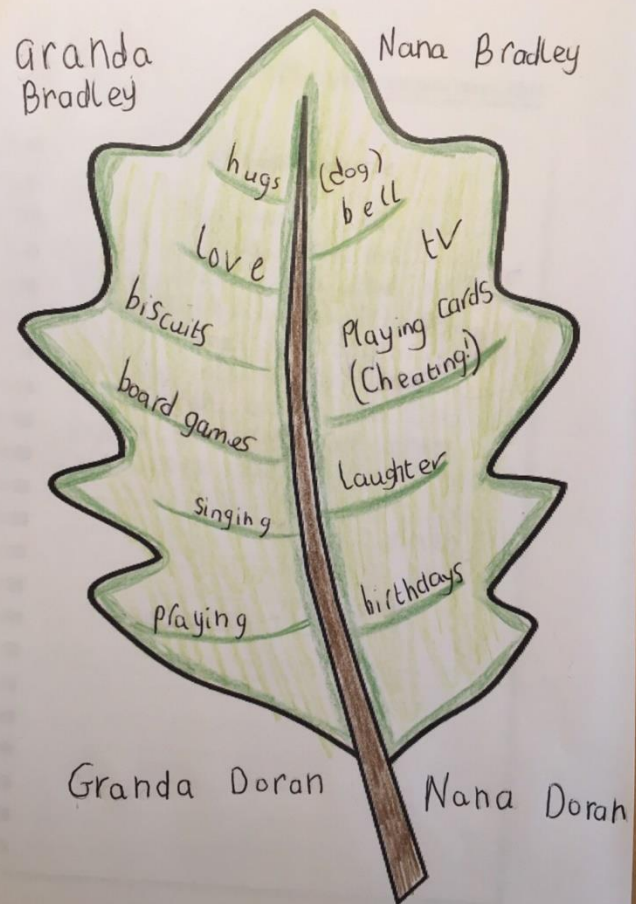 Granda
Bradley
Nana Bradley
hugs
love
biscuits
board games
singing
playing
(dog)
bell
tv
Playing cards
(Cheating!)
Laughter
birthdays
Granda Doran
Nana Doran